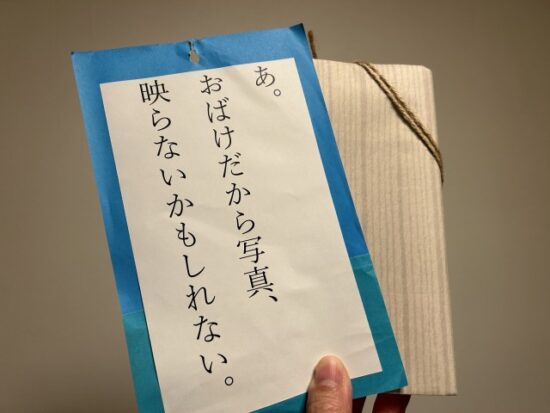 あ。
おばけだから写真、
映らないかもしれない。